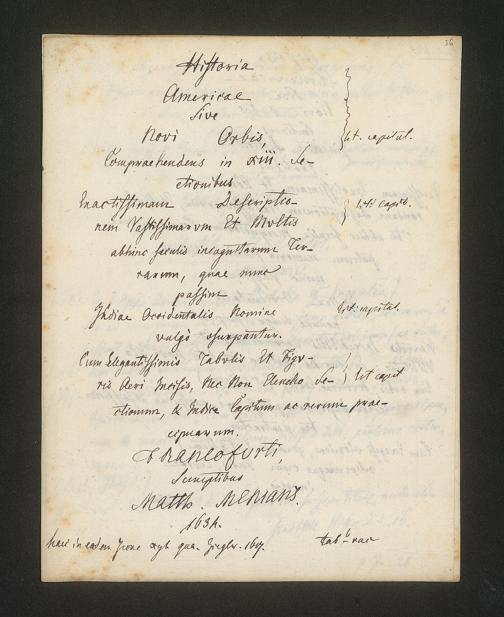 36
Historia
Americae
sive
Novi Orbis,
Compraehendens in XIII. Se-
ctionibus
Exactissimam Descriptio-
nem Vastissimarum Et Multis
abhinc saeculis incognitarum Ter-
rarum, quae nunc
passim
Indiae Occidentalis Nomine
vulgò usurpantur.
Cum Elegantissimis Tabulis Et Figu-
ris Aeri Incisis, Nec Non Elencho Se-
ctionum, & Indice Capitum ac rerum prae-
cipuarum.
Francofurti,
Sumptibus
Matth. Merians.
1634.
lit. capital.
lit. capit.
lit. capital.
lit capit